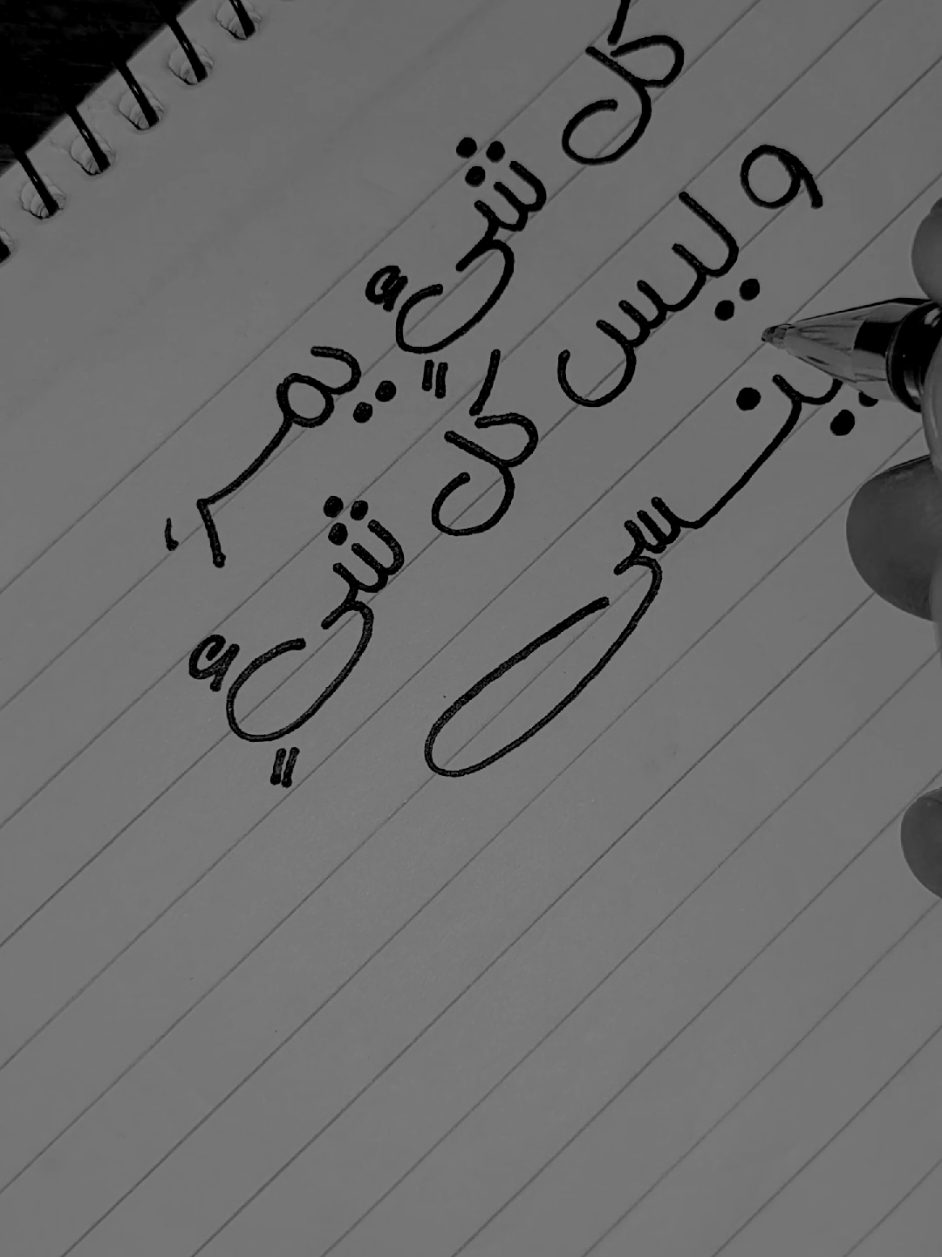 كل شيءٍ يمر،
وليس كل شيءٍ
ينسى